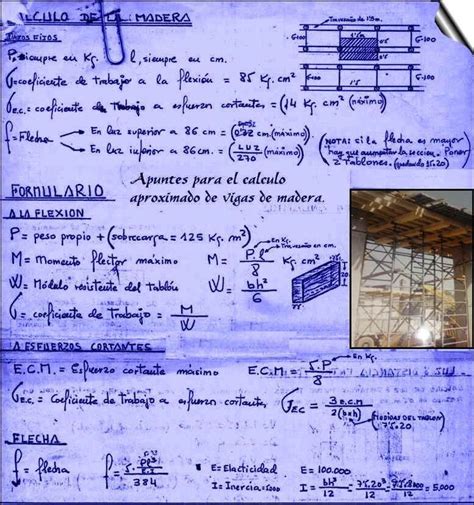 CALCULO DE LA MADERA
DATOS FIJOS
P, siempre en Kg. l, siempre en cm.
σ = coeficiente de trabajo a la flexión = 85 Kg. cm² (máximo)
σE.C. = coeficiente de trabajo a esfuerzo cortantes = (14 Kg. cm² (máximo)
f = Flecha → En luz superior a 86 cm = (0'32 cm. (máximo)
→ En luz inferior a 86 cm. = (LUZ/270 (máximo)
(NOTA: si la flecha es mayor
hay que aumentar la sección. Poner
2 Tablones. (quedando 15.20)
Travesaño de 1'5 m.
G-100 G-100
Apuntes para el calculo
aproximado de vigas de madera.
FORMULARIO
A LA FLEXION
P = peso propio + (sobrecarga = 125 Kg. m²)
M = Momento flector máximo M = P.l/8 Kg. cm²
→ En Kg.
→ Travesaño en cm.
W = Módulo resistente del tablón W = bh²/6
σ = coeficiente de Trabajo = M/W
A ESFUERZOS CORTANTES
E.C.M. = Esfuerzo cortante máximo E.C.M. = 5.P/8 → En Kg.
σE.C. = Coeficiente de trabajo a esfuerzo cortante, σEC = 3 E.C.M/2(b×h) (MEDIDAS DEL TABLON)
7'5.20
FLECHA
f = flecha f = 5. PP³/E.I/384 E = Elasticidad E = 100.000
I = Inercia = 5000 I = bh³/12 = 7'5.20³/12 = 7'5.8000/12 = 5,000